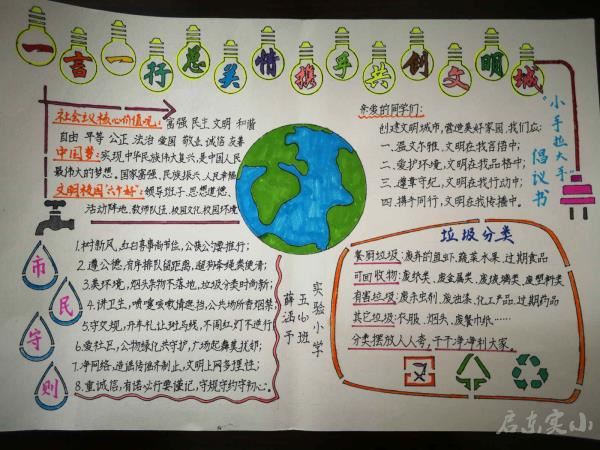 一言一行总关情携手共创文明城
社会主义核心价值观：富强 民主 文明 和谐
自由 平等 公正 法治 爱国 敬业 诚信 友善
中国梦：实现中华民族伟大复兴，是中国人民
最伟大的梦想。国家富强、民族振兴、人民幸福
文明校园"六个好"：领导班子、思想道德、
活动阵地、教师队伍、校园文化、校园环境
市民守则
1.树新风，红白喜事南节俭，公筷公勺要推行；
2.遵公德，有序排队留距离，遛狗牵绳粪便清；
3.美环境，烟头杂物不落地，垃圾分类时尚新；
4.讲卫生，喷嚏咳嗽情遮挡，公共场所吝烟禁；
5.守交规，开车礼让斑马线，不闯红灯不逆行；
6.爱社区，公物绿化共守护，广场起舞莫扰邻；
7.净网络，造谣传谣齐制止，文明上网务理性；
8.重诚信，有诺必行要谨记，守规守约守初心。
实验小学
五(6)班
薛涵予
亲爱的同学们：
创建文明城市，营造美好家园，我们应：
一、温文尔雅，文明在我言语中；
二、爱护环境，文明在我品格中；
三、遵章守纪，文明在我行动中；
四、携手同行，文明在我传播中。
"小手拉大手"
倡议书
垃圾分类
餐厨垃圾：废弃的鱼虾、蔬菜水果、过期食品
可回收物：废纸类、废金属类、废玻璃类、废塑料类
有害垃圾：废杀虫剂、废油漆、化工产品、过期药品
其它垃圾：衣服、烟头、废餐巾纸……
分类摆放人人夸，干干净净利大家。
启东实小